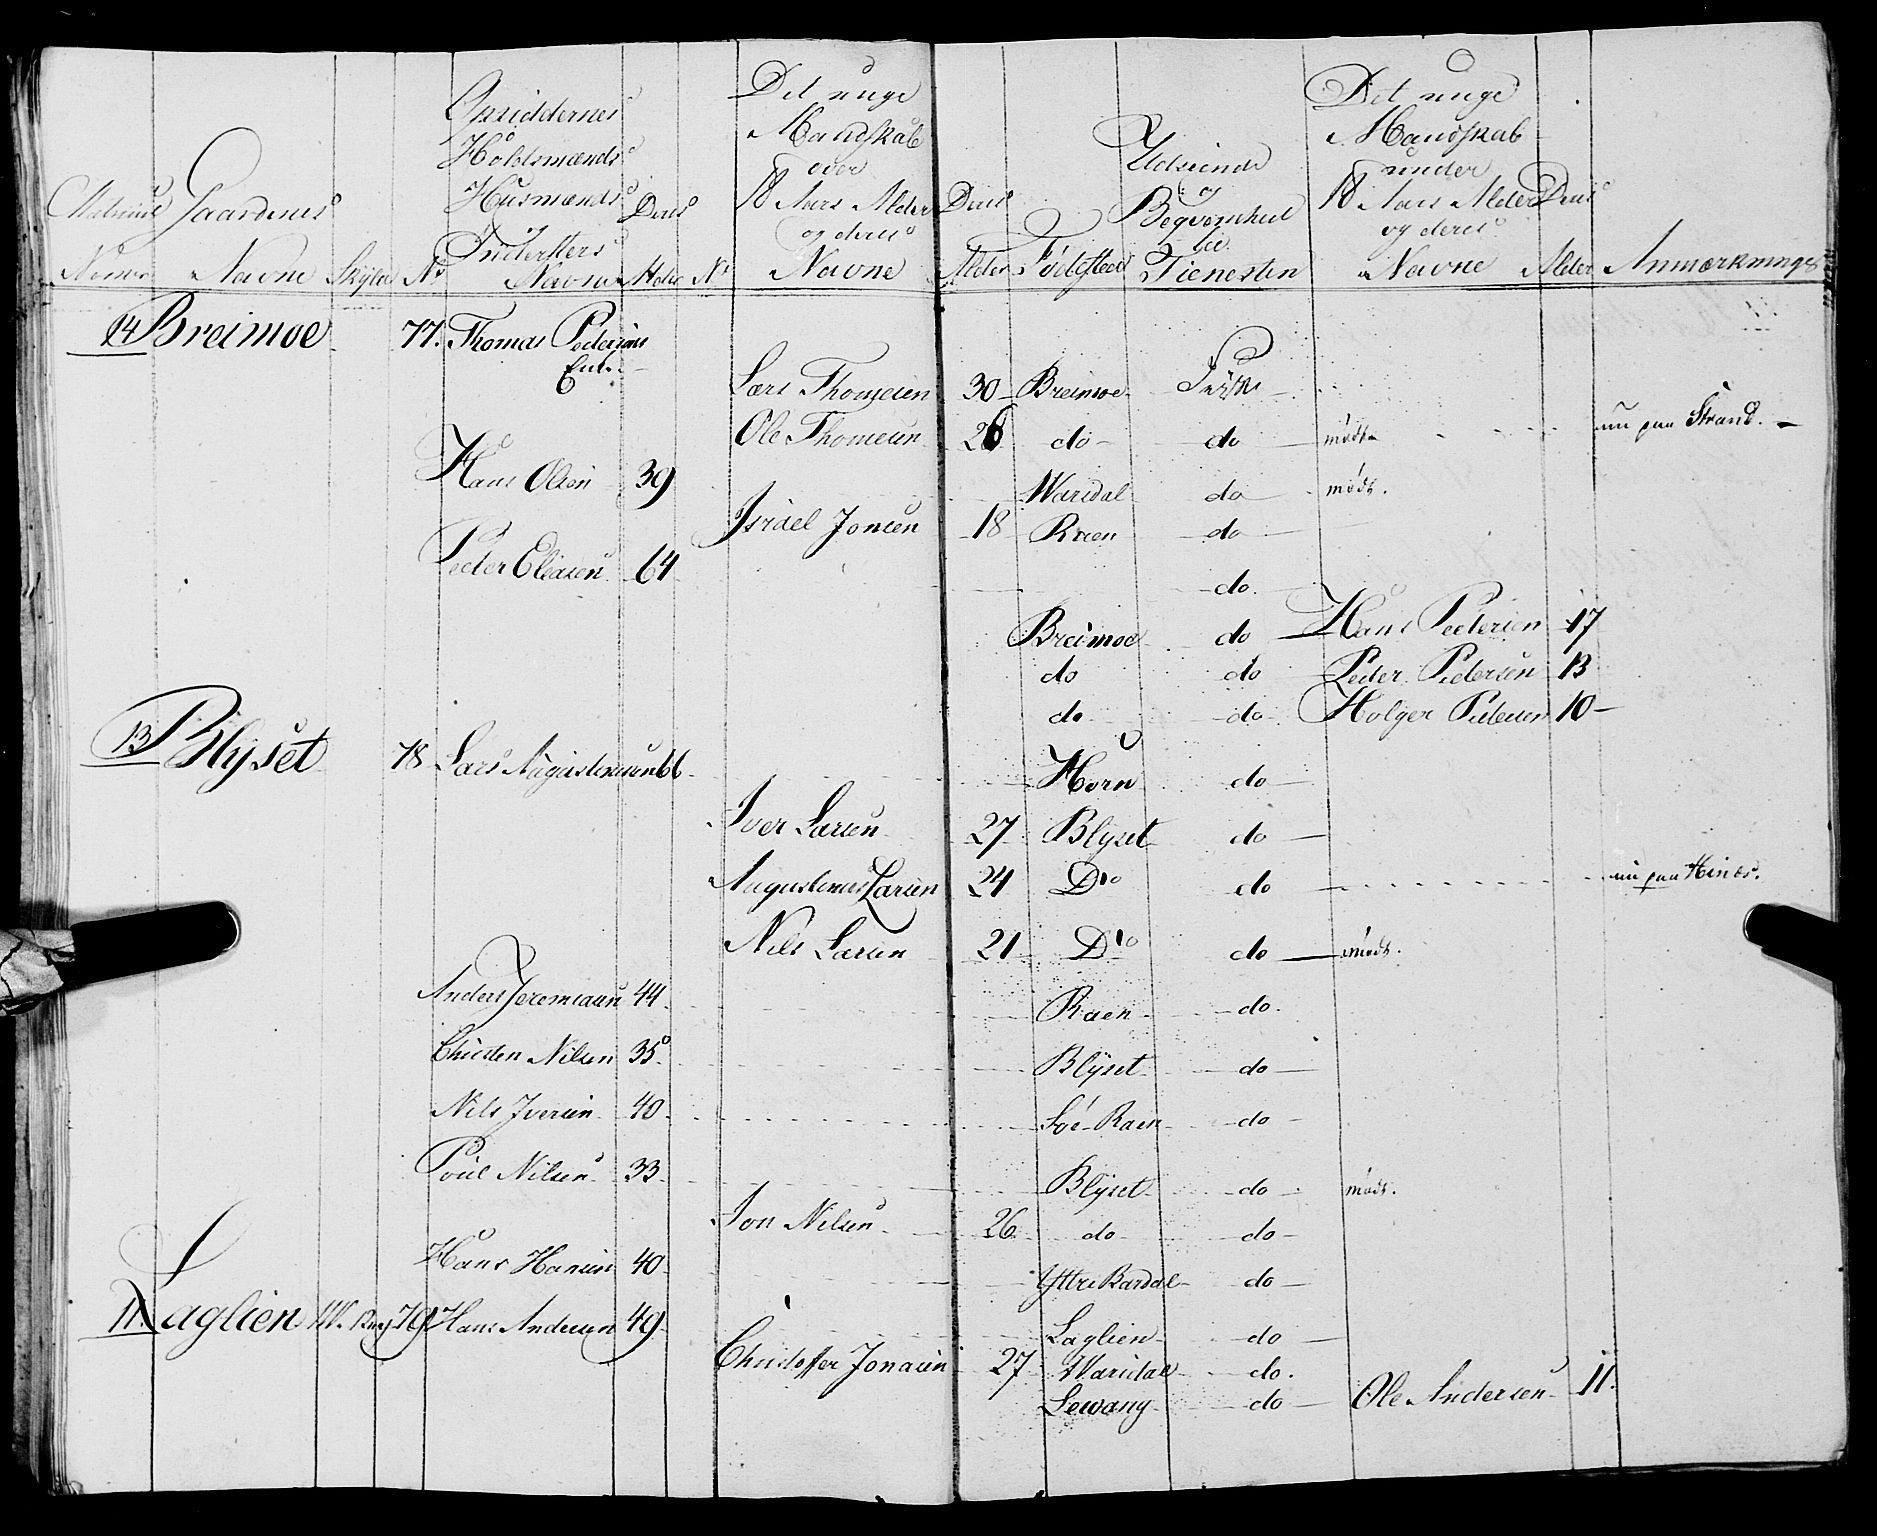 Matricul Nummer
Gaardenes Navne
Skyld
No
Opsiddernes Holdsmænds Husmænds Indersters Navne
Deres Alder
No
Det unge Mandskab over 18 Aars Alder og deres Navne
Deres Alder
Fødested
Udseende og Beqvemhed til Tienesten
Det unge Mandskab under 18 Aars Alder og deres Navne
Deres Alder
Anmærkninger
14 Breimoe 77. Thomas Pedersens Enke
Lars Thomesen 30 Breimoe Frisk
Ole Thomesen 26 do do mødt nu paa Strand.
Hans Olsen 39 Warsdal do mødt.
Israel Jonsen 18 Raen do
Peder Eliasen 64 do.
Breimoe do Hans Pedersen 17
do do Peder Pedersen 13
do do Holger Pedersen 10
13 Blyset 78 Lars Augustinusen 66 Horn do
Iver Larsen 27 Blyset do
Augustinus Larsen 24 Do do nu paa Hinæs.
Nils Larsen 21 Do do mødt.
Anders Jeremiasen 44 Raen do.
Christen Nilsen 35 Blyset do
Nils Iversen 40 Søe-Raen do
Poul Nilsen 33 Blyset do mødt.
Jon Nilsen 26 do do
Hans Hansen 40 Yttre Bardal do
11. Laglien 79 Hans Andersen 49 Laglien do
Christoffer Jonasen 27 Warsdal do.
Lewang do Ole Andersen 11.